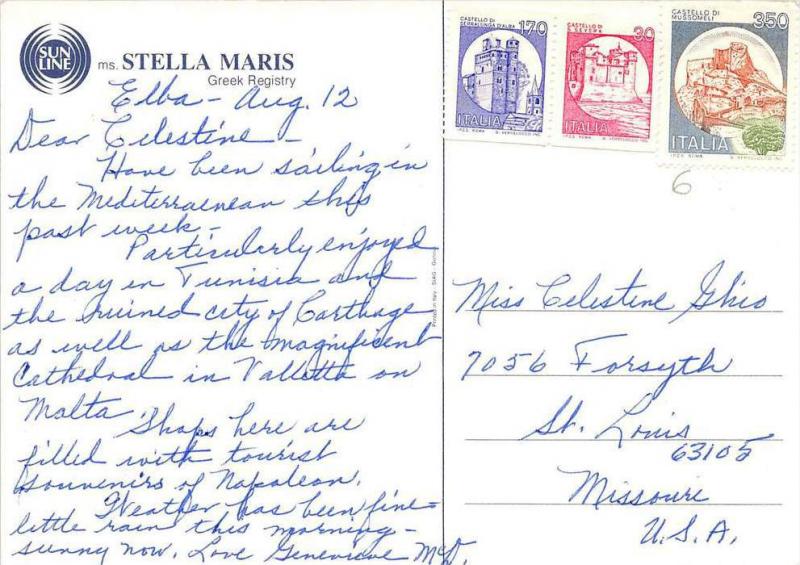 SUN
LINE
ms. STELLA MARIS
Greek Registry
Elba - Aug. 12
Dear Celestine -
Have been sailing in
the Mediterraenean this
past week -
Particularly enjoyed
a day in Tunisia and
the ruined city of Carthage
as well as the magnificent
Cathedral in Valletta on
Malta.
Shops here are
filled with tourist
souvenirs of Napoleon.
Weather has been fine -
little rain this morning -
sunny now. Love Genevieve McD.
Printed in Italy - SIAG - Genova
CASTELLO DI
SERRALUNGA D'ALBA
170
ITALIA
I.P.Z.S. ROMA
CASTELLO DI
SEVERA
30
ITALIA
I.P.Z.S. ROMA
CASTELLO DI
MUSSOMELI
350
ITALIA
I.P.Z.S. ROMA
6
Miss Celestine Ghio
7056 Forsyth
St. Louis
63105
Missouri
U.S.A.